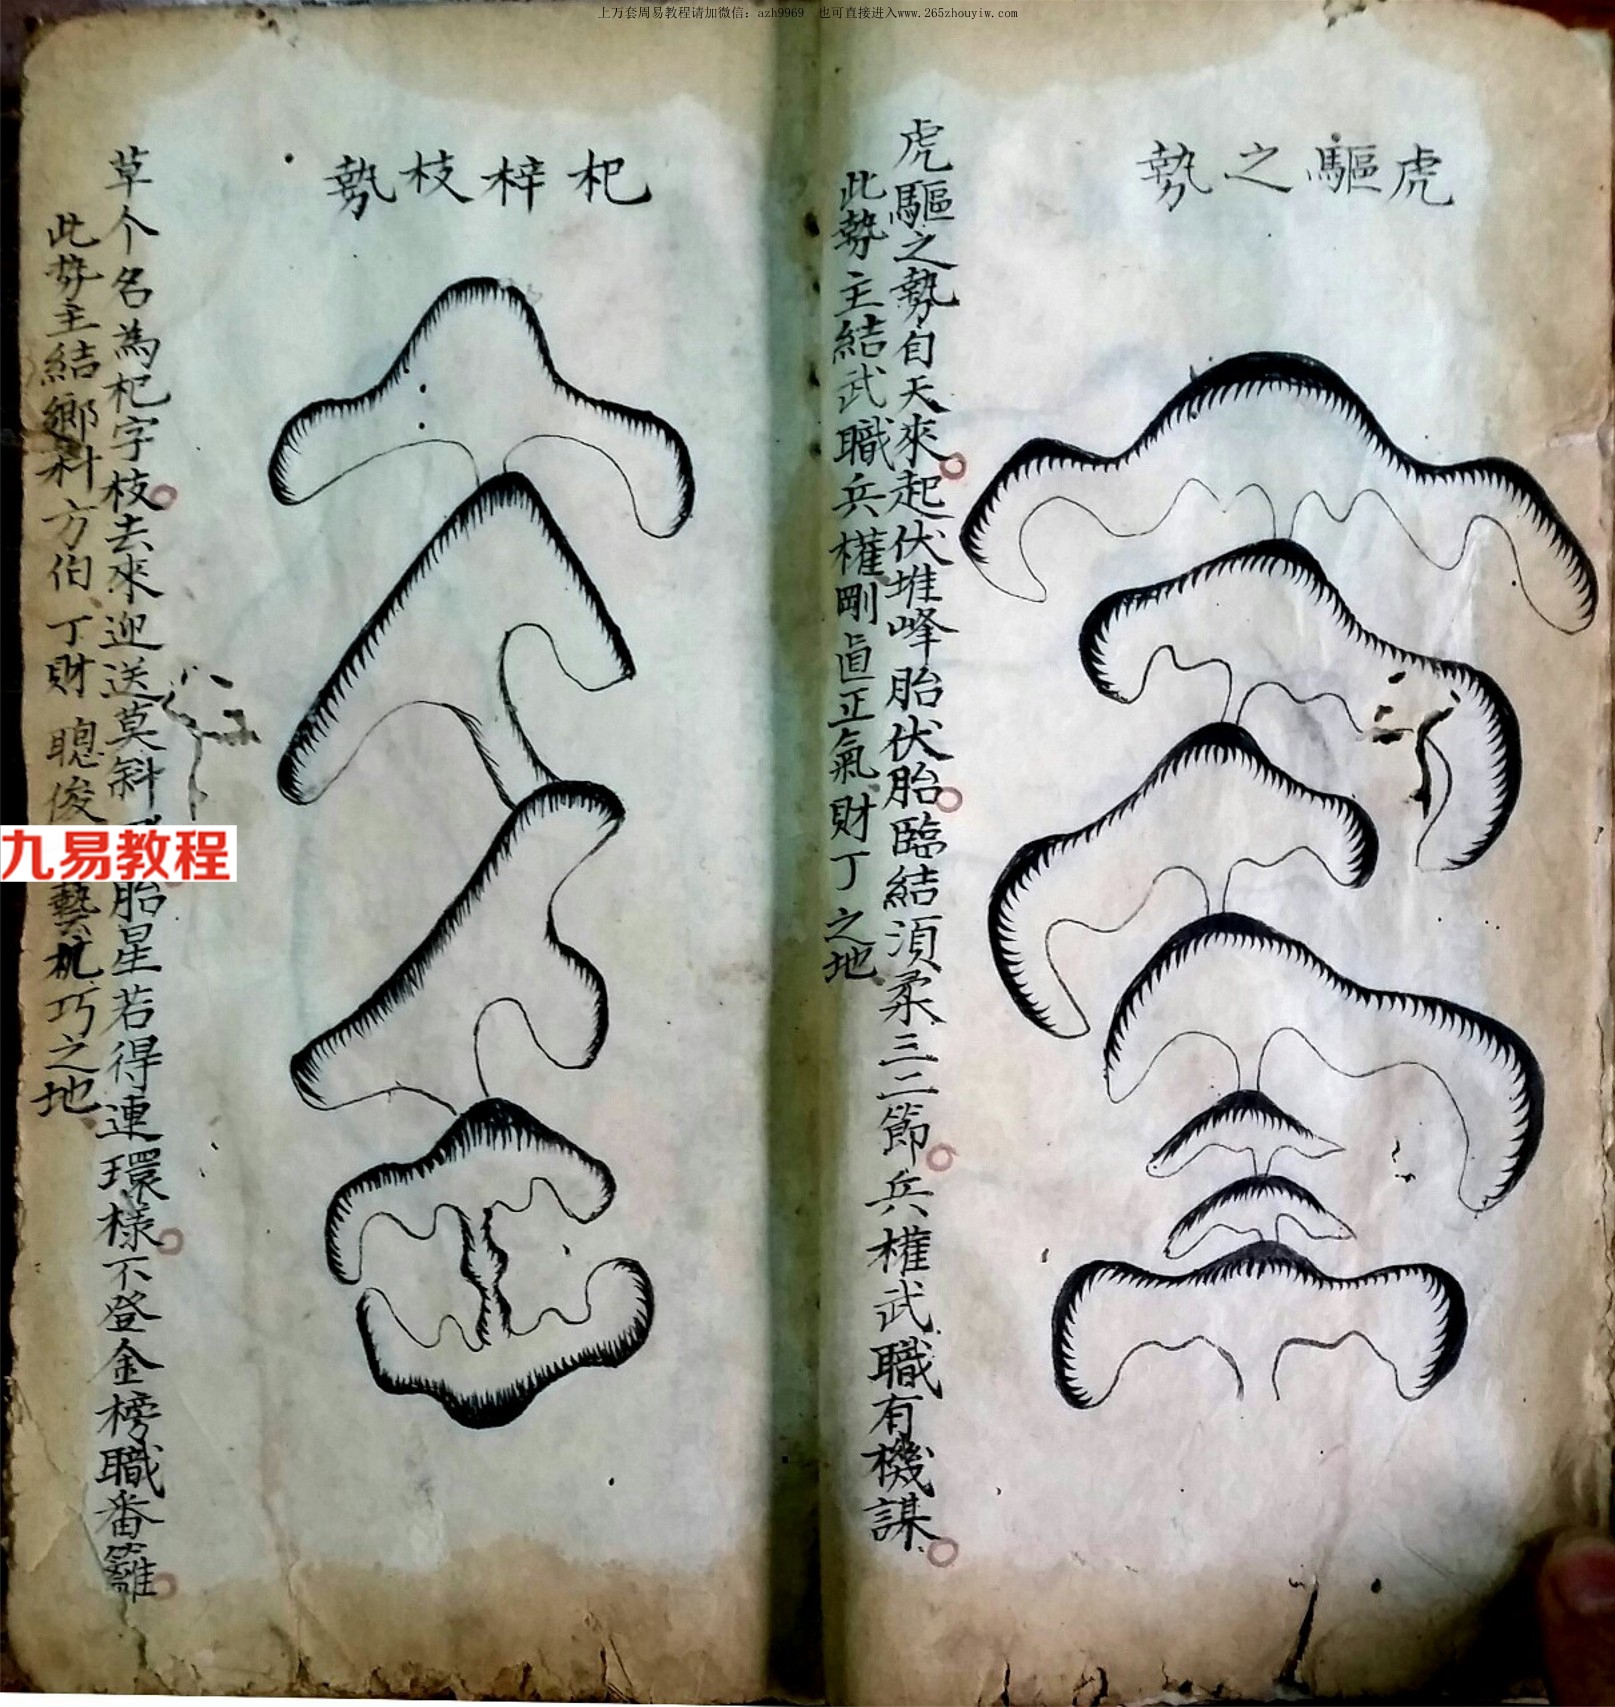 上万套周易教程请加微信：azh9969　也可直接进入www.265zhouyiw.com
虎驅之勢
虎驅之勢自天來起伏堆峰胎伏胎臨結須柔三二節兵權武職有機謀
此勢主結武職兵權剛直正氣財丁之地
杞梓枝勢
草个名為杞字枝去來迎送莫斜胎星若得連環樣不登金榜職番籬
此勢主結鄉科方伯丁財聰俊藝机巧之地
九易教程